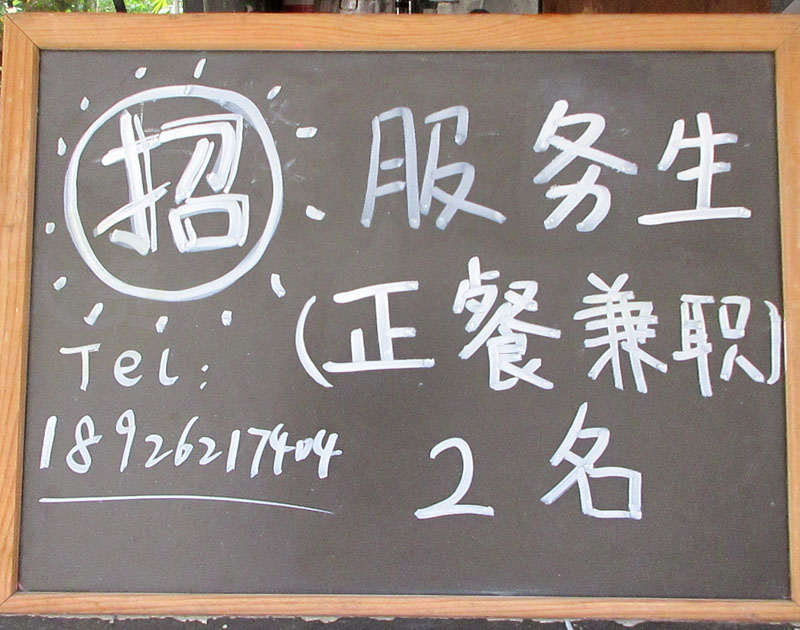 招 服务生
(正餐兼职)
Tel:
18926217404
2名